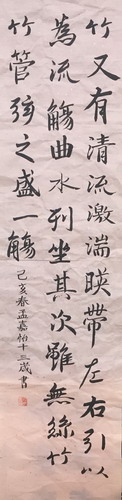 竹又有清流激湍暎帶左右引以
為流觴曲水列坐其次雖無絲竹
竹管弦之盛一觴
己亥春孟嘉怡十三歲書